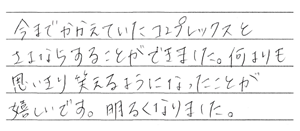 今までかかえていたコンプレックスと
さよならすることができました。何よりも
思いきり笑えるようになったことが
嬉しいです。明るくなりました。